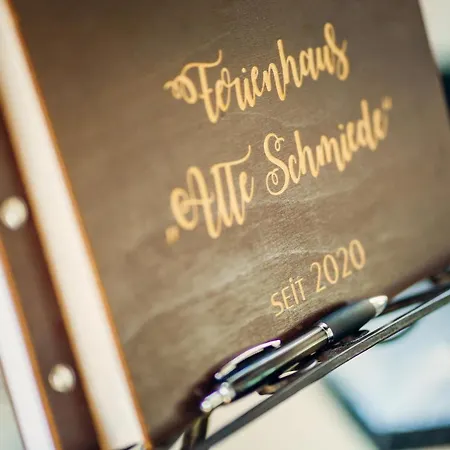 Ferienhaus
„Alte Schmiede“
SEIT 2020